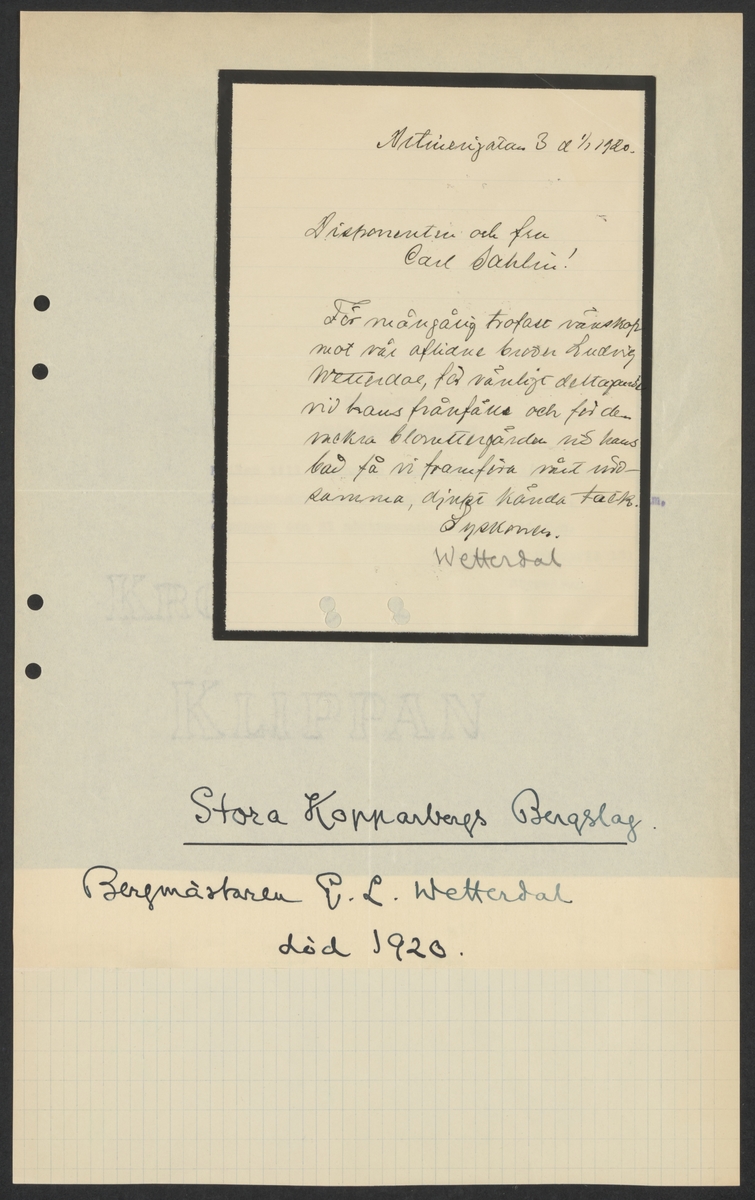 Artillerigatan 3 d 1/1 1920.
Disponenten och fru
Carl Sahlin!
För mångårig trofast vänskap
mot vår aflidne broder Ludvig
Wetterdal, för vänligt deltagande
vid hans frånfälle och för den
vackra blomstergärden vid hans
bår få vi framföra vårt vörd-
samma, djupt kända tack.
Syskonen.
Wetterdal
KLIPPAN
Stora Kopparbergs Bergslag.
Bergmästaren G. L. Wetterdal
död 1920.